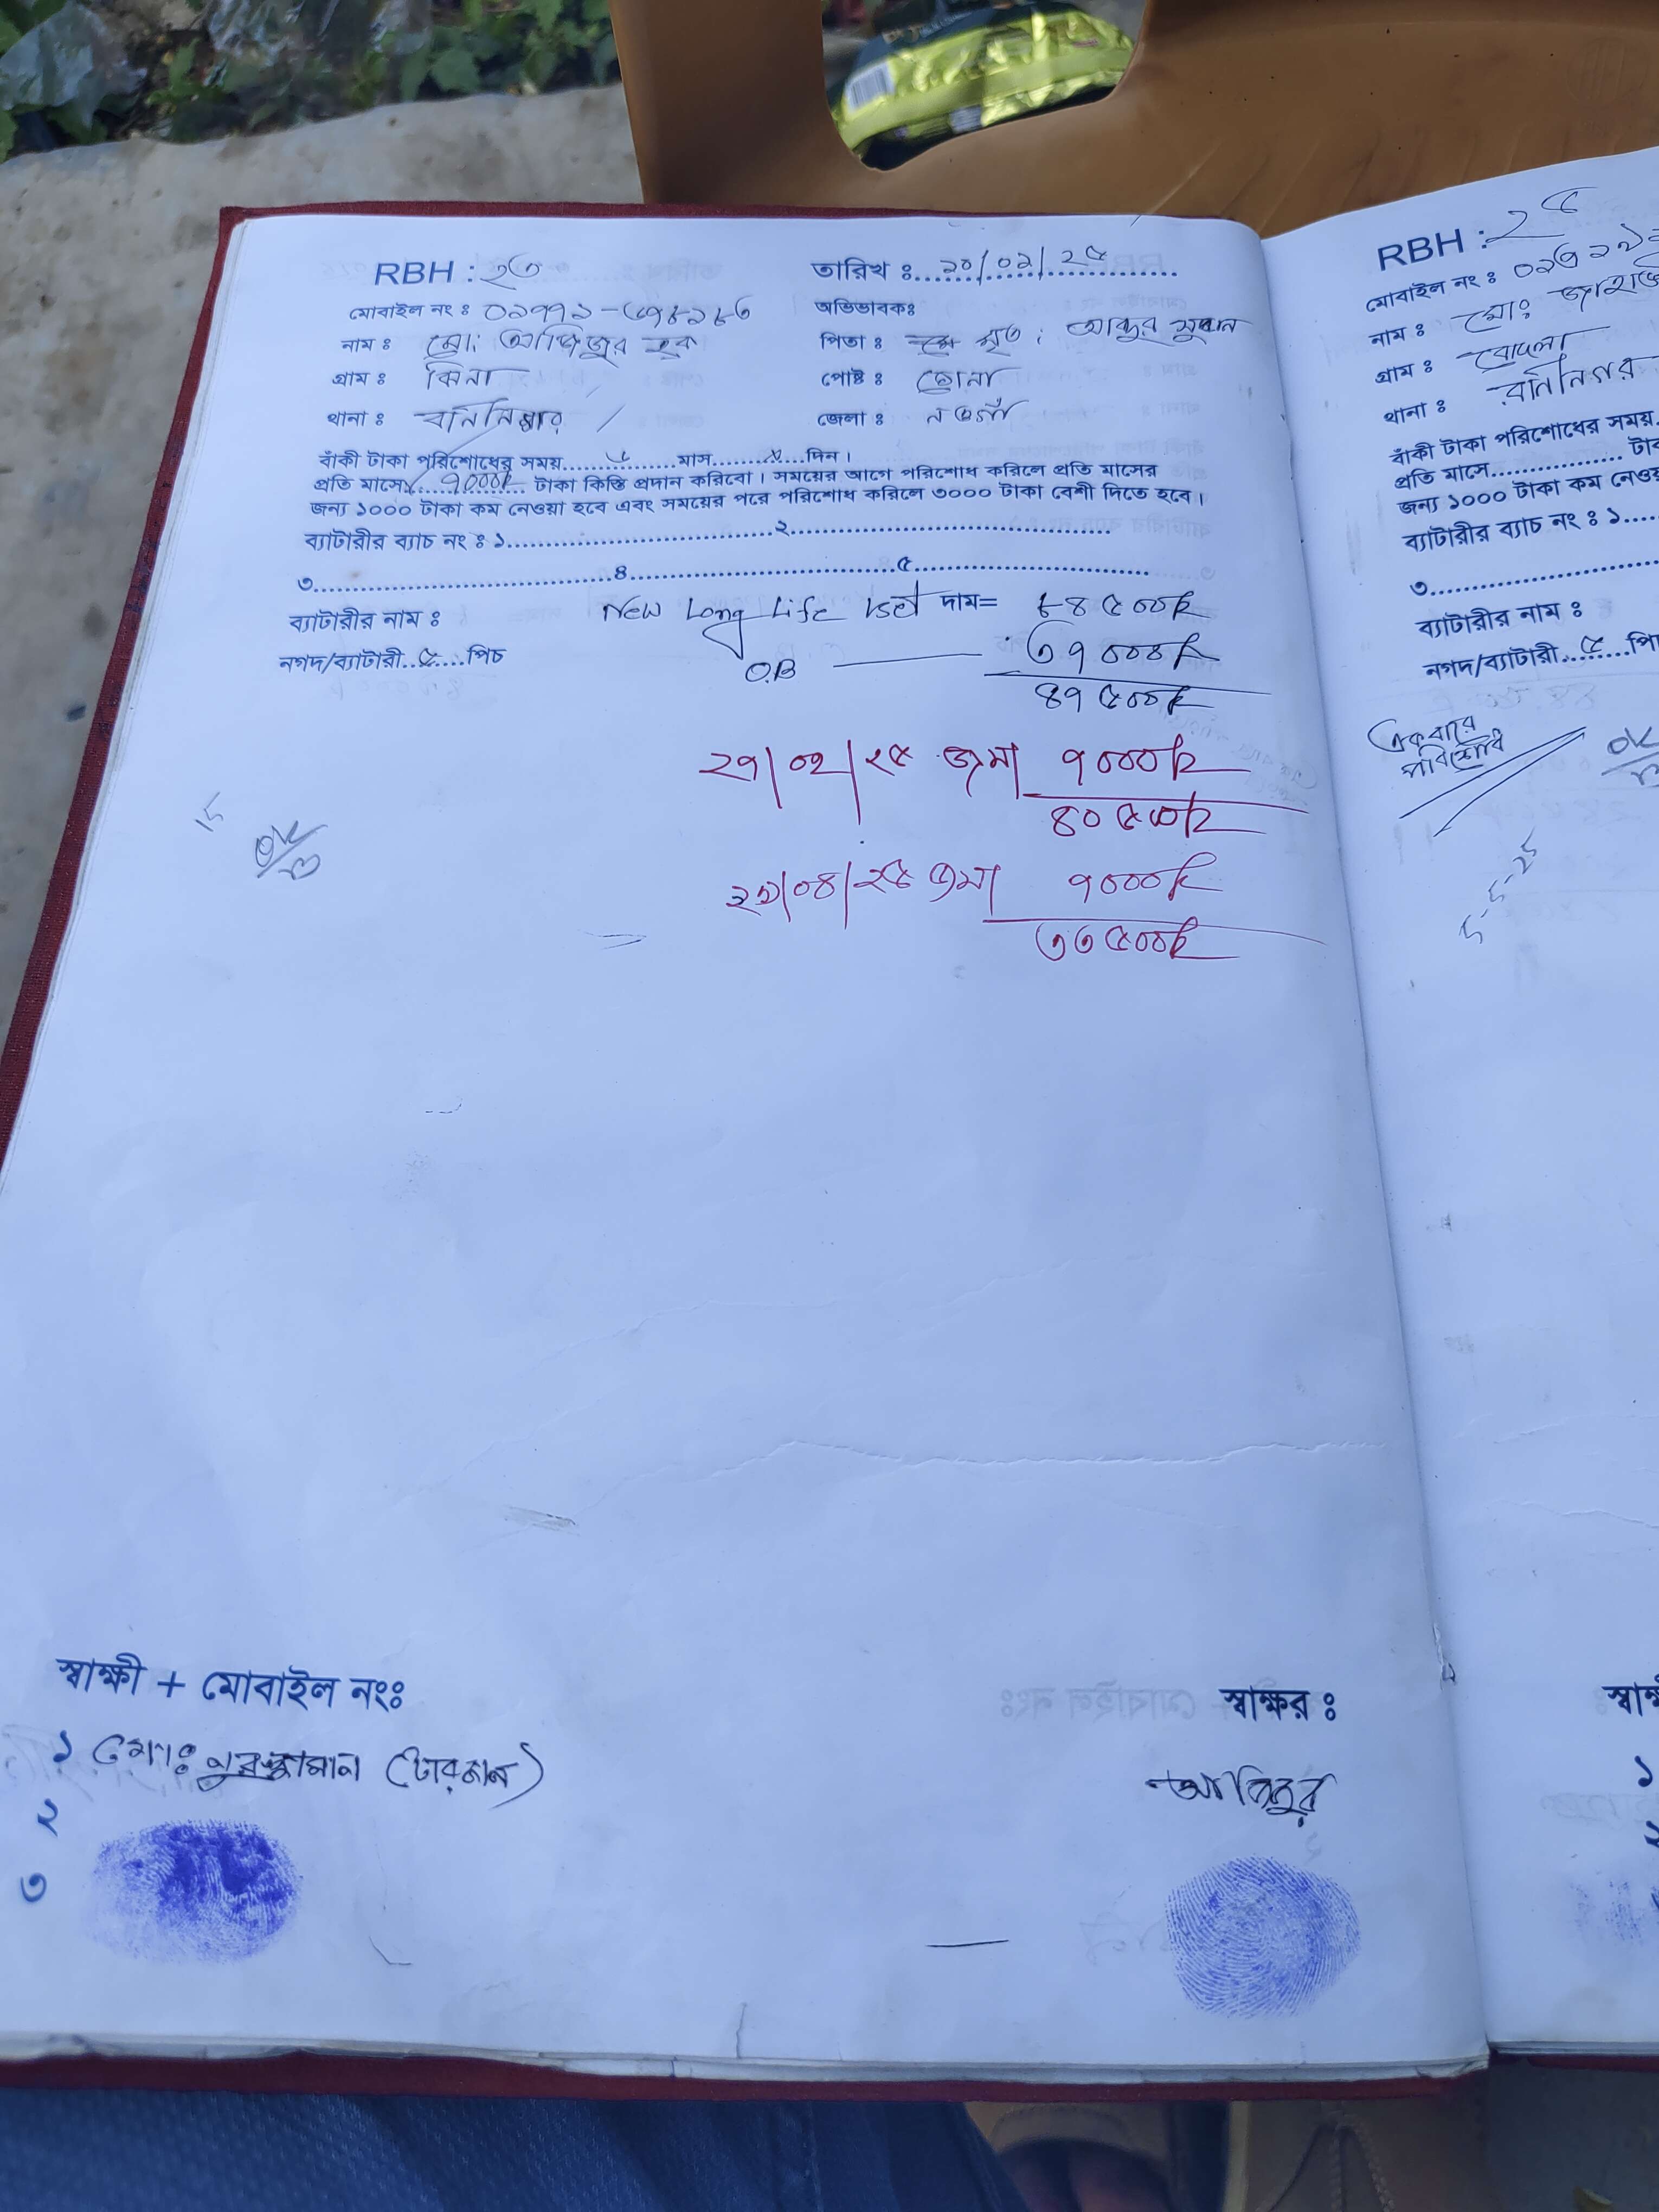 RBH : ২৩
তারিখ ঃ ২০/০২/২৫
মোবাইল নং ঃ
অভিভাবকঃ
নাম ঃ মো: আজিজুর হক
পিতা ঃ মৃত : আব্দুর
গ্রাম ঃ ঝিনা
পোষ্ট ঃ
থানা ঃ
জেলা ঃ নওগাঁ
বাঁকী টাকা পরিশোধের সময়..............মাস..............দিন।
প্রতি মাসে ৭০০০ টাকা কিস্তি প্রদান করিবো। সময়ের আগে পরিশোধ করিলে প্রতি মাসের
জন্য ১০০০ টাকা কম নেওয়া হবে এবং সময়ের পরে পরিশোধ করিলে ৩০০০ টাকা বেশী দিতে হবে।
ব্যাটারীর ব্যাচ নং ঃ ১..............২..............
৩..............৪..............৫..............
ব্যাটারীর নাম ঃ New Long Life 1set দাম= ৮৪৫০০
নগদ/ব্যাটারী..৫....পিচ
O.B ৩৭০০০
৪৭৫০০
২৭/০২/২৫ জমা ৭০০০
৪০৫০০
২১/০৪/২৫ জমা ৭০০০
৩৩৫০০
15
OK
স্বাক্ষী + মোবাইল নংঃ
স্বাক্ষর ঃ
১ মোঃ নুরুজ্জামান
২
৩
RBH : ২৫
মোবাইল নং ঃ
নাম ঃ মোঃ
গ্রাম ঃ
থানা ঃ রানিনগর
বাঁকী টাকা পরিশোধের সময়.
প্রতি মাসে..............
জন্য ১০০০ টাকা কম
ব্যাটারীর ব্যাচ নং ঃ ১....
৩..............
ব্যাটারীর নাম ঃ
নগদ/ব্যাটারী..৫....
একবারে
পরিশোধ
OK
5-5-25
১